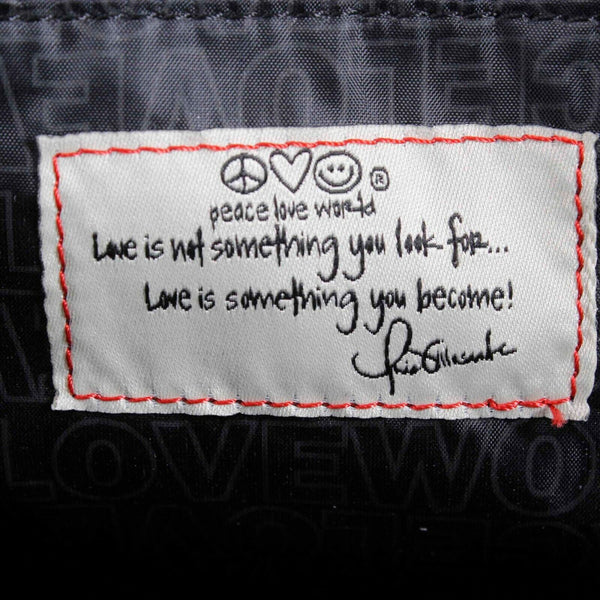 ®
peace love world
Love is not something you look for...
Love is something you become!
LOVEWO